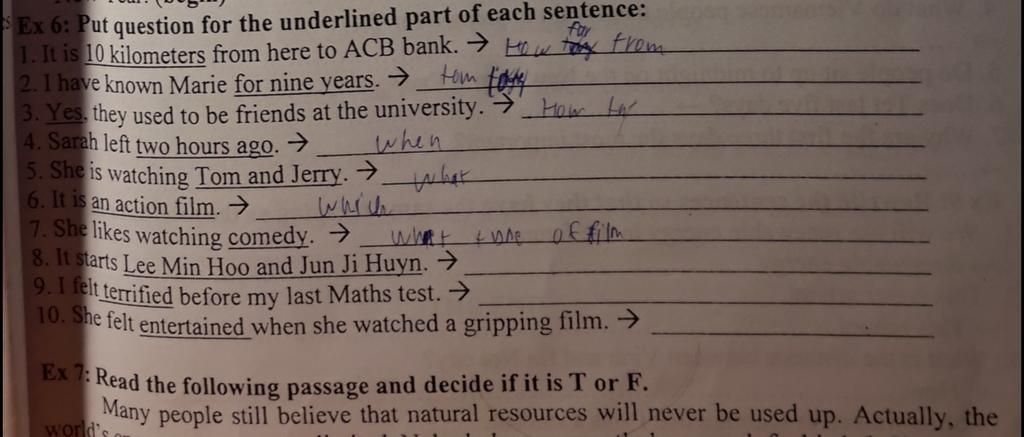 Ex 6: Put question for the underlined part of each sentence:
1. It is 10 kilometers from here to ACB bank. → How far from
2. I have known Marie for nine years. →
3. Yes, they used to be friends at the university. → How
4. Sarah left two hours ago. → when
5. She is watching Tom and Jerry. → what
6. It is an action film. → which
7. She likes watching comedy. → what of film
8. It starts Lee Min Hoo and Jun Ji Huyn. →
9. I felt terrified before my last Maths test. →
10. She felt entertained when she watched a gripping film. →
Ex 7: Read the following passage and decide if it is T or F.
Many people still believe that natural resources will never be used up. Actually, the
world's